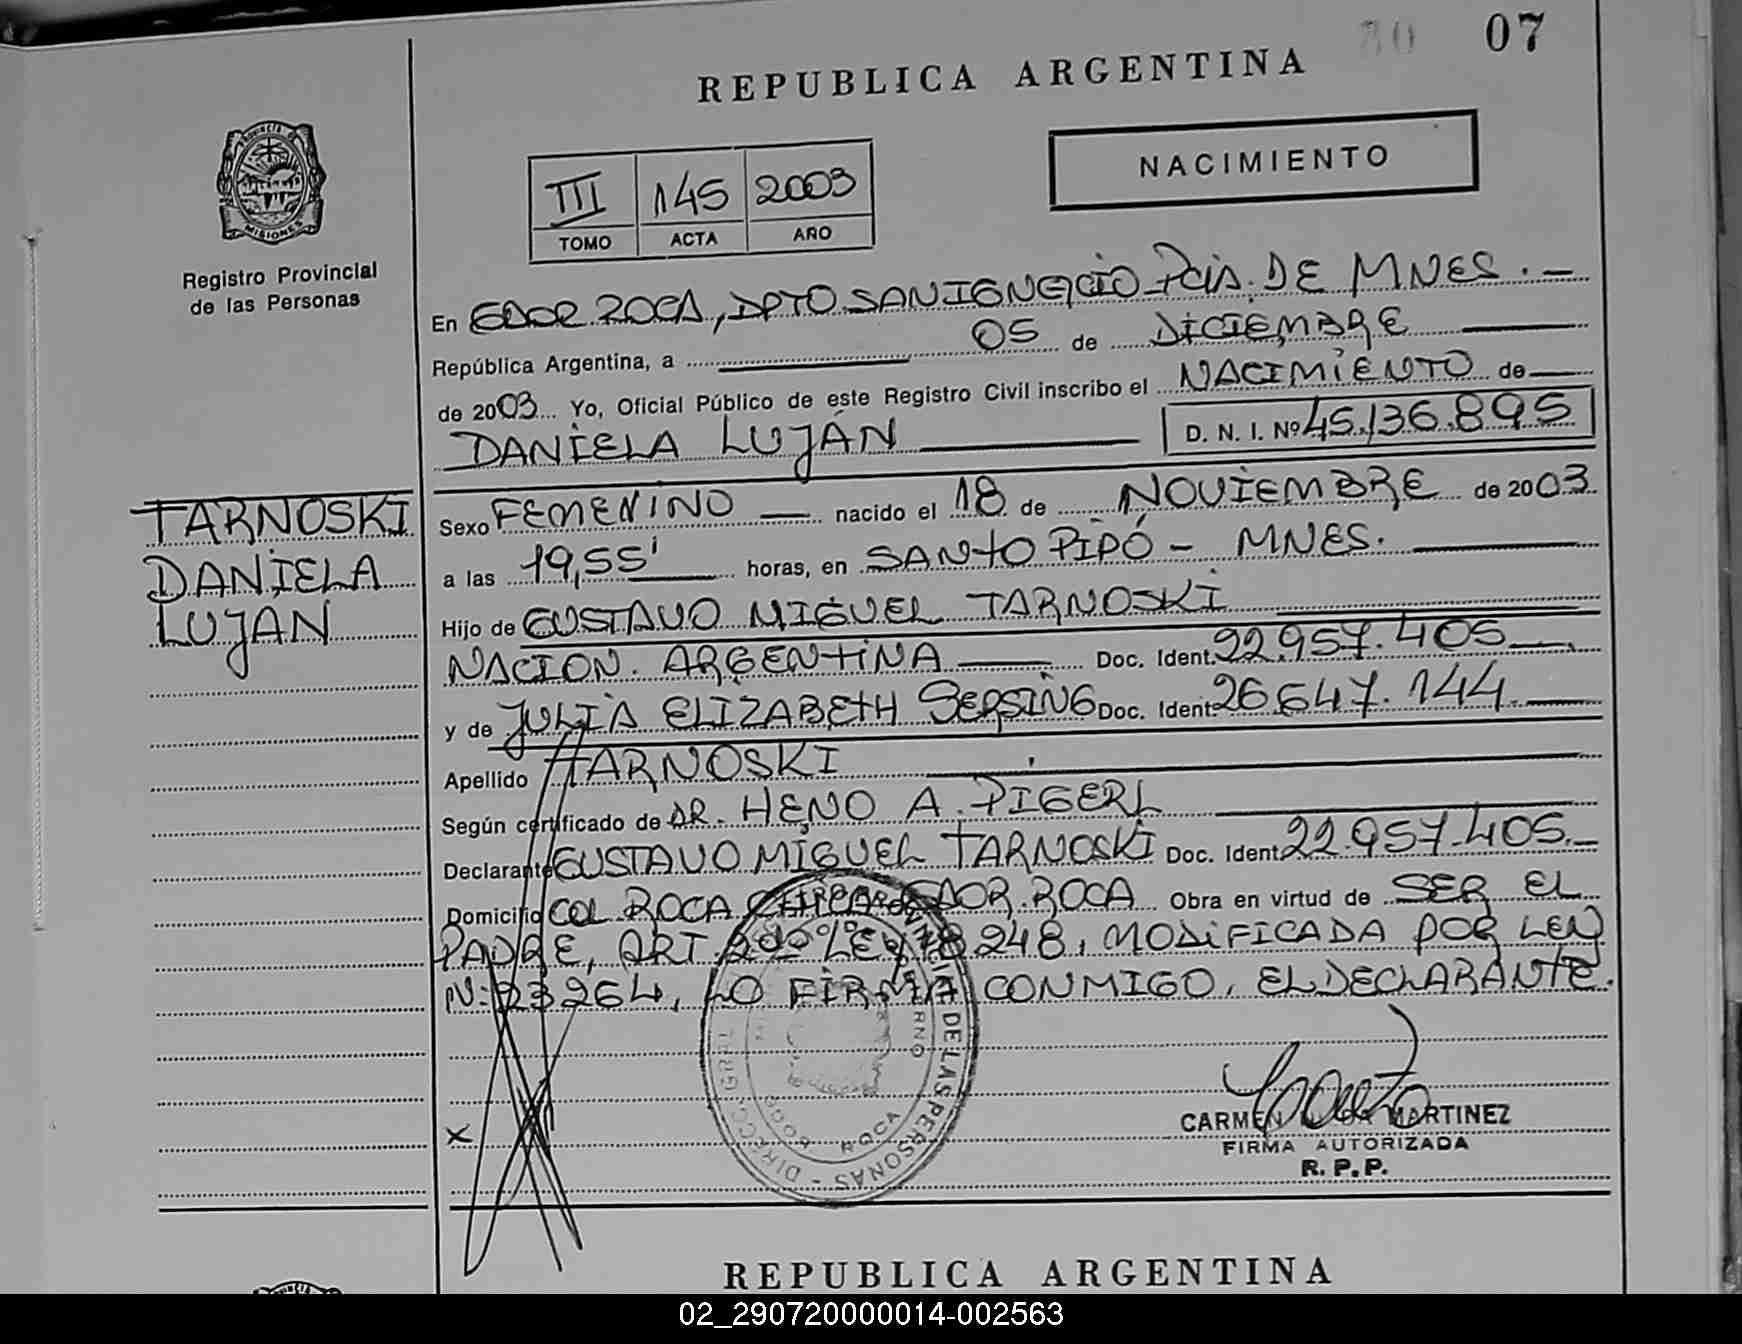 30 07
REPUBLICA ARGENTINA
PROVINCIA DE
MISIONES
Registro Provincial
de las Personas
III 145 2003
TOMO ACTA AÑO
NACIMIENTO
En GDOR ROCA, DPTO SAN IGNACIO Pcia. DE MNES.-
República Argentina, a 05 de DICIEMBRE
de 2003 Yo, Oficial Público de este Registro Civil inscribo el NACIMIENTO de
DANIELA LUJÁN D. N. I. Nº 45.136.895
TARNOSKI
DANIELA
LUJAN
Sexo FEMENINO nacido el 18 de NOVIEMBRE de 2003
a las 19,55' horas, en SANTO PIPÓ - MNES.
Hijo de GUSTAVO MIGUEL TARNOSKI
NACION. ARGENTINA Doc. Ident. 22.957.405
y de JULIA ELIZABETH Doc. Ident. 26.647.144
Apellido TARNOSKI
Según certificado de DR. HENO A. PIGERL
Declarante GUSTAVO MIGUEL TARNOSKI Doc. Ident. 22.957.405.-
Domicilio COL ROCA GDOR. ROCA Obra en virtud de SER EL
PADRE, ART. LEY 18248, MODIFICADA POR LEY
Nº 23264, LO FIRMA CONMIGO, EL DECLARANTE.
DE LAS PERSONAS - ROCA
X
CARMEN MARTINEZ
FIRMA AUTORIZADA
R. P. P.
REPUBLICA ARGENTINA
02_290720000014-002563